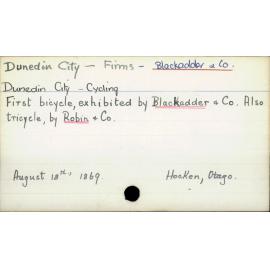 Dunedin City — Firms — Blackadder & Co.
Dunedin City - Cycling
First bicycle, exhibited by Blackadder & Co. Also
tricycle, by Robin & Co.
August 18th, 1869. Hocken, Otago.